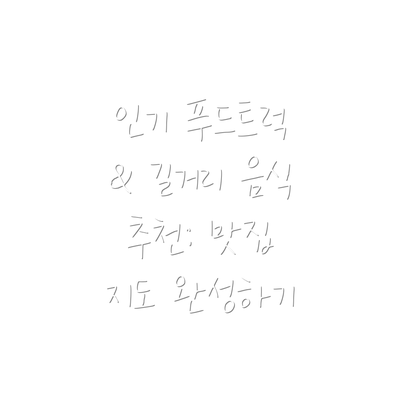 인기 푸드트럭
& 길거리 음식
추천: 맛집
지도 완성하기